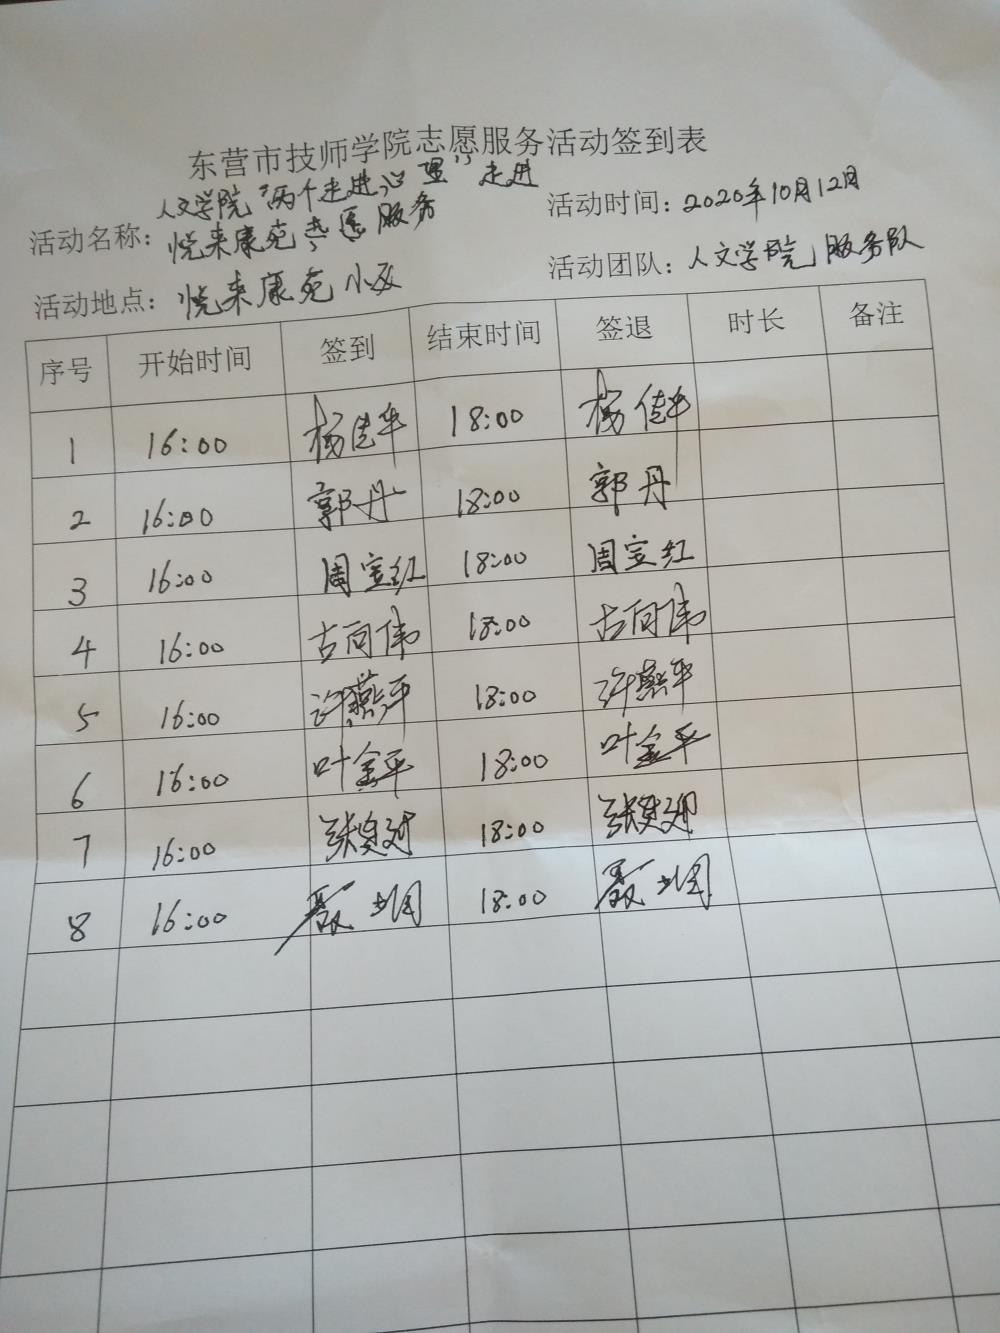 东营市技师学院志愿服务活动签到表
人文学院"两个走进心里"走进
活动名称：悦来康苑志愿服务 活动时间：2020年10月12日
活动地点：悦来康苑小区 活动团队：人文学院服务队
序号 开始时间 签到 结束时间 签退 时长 备注
1 16:00 杨佳平 18:00 杨佳平
2 16:00 郭丹 18:00 郭丹
3 16:00 周宝红 18:00 周宝红
4 16:00 古向伟 18:00 古向伟
5 16:00 许燕平 18:00 许燕平
6 16:00 叶金平 18:00 叶金平
7 16:00 18:00
8 16:00 18:00